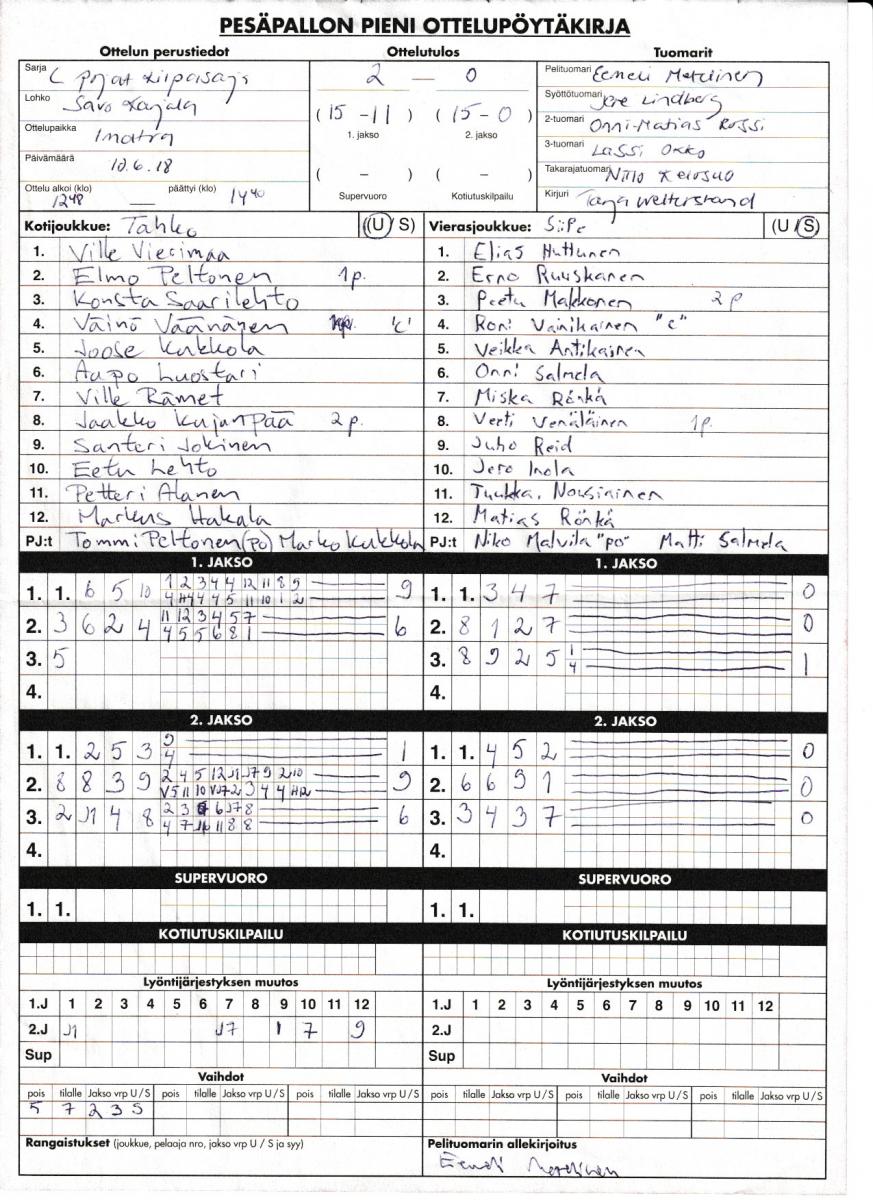 PESÄPALLON PIENI OTTELUPÖYTÄKIRJA
Ottelun perustiedot Ottelutulos Tuomarit
Sarja C pojat
Lohko Savo Karjala
Ottelupaikka Imatra
Päivämäärä 10.6.18
Ottelu alkoi (klo) päättyi (klo)
1248 — 1440
2 — 0
(15 - 11) (15 - 0)
1. jakso 2. jakso
( - ) ( - )
Supervuoro Kotiutuskilpailu
Pelituomari Eemeli
Syöttötuomari Jere Lindberg
2-tuomari Onni-Matias Rossi
3-tuomari Lassi Okko
Takarajatuomari Niilo
Kirjuri Tarja
Kotijoukkue: Tahko (U / S) Vierasjoukkue: SiiPe (U / S)
1. Ville Vierimaa 1. Elias Huttunen
2. Elmo Peltonen 1p. 2. Erno Ruuskanen
3. Konsta Saarilehto 3. Peetu Makkonen 2p
4. Väinö Väänänen 'C' 4. Roni Vainikainen "C"
5. Joose Kukkola 5. Veikka Antikainen
6. Aapo Luostari 6. Onni Salmela
7. Ville Rämet 7. Miska Rönkä
8. Jaakko Kujanpää 2p. 8. Verti Venäläinen 1p.
9. Santeri Jokinen 9. Juho Reid
10. Eetu Lehto 10. Jero Inola
11. Petteri Alanen 11. Tuukka Nousiainen
12. Markus Hakala 12. Matias Rönkä
PJ:t Tommi Peltonen (po) Marko Kukkola PJ:t Niko Malvila "po" Matti Salmela
1. JAKSO 1. JAKSO
1. 1. 6 5 10 1 2 3 4 4 12 11 8 9 9 1. 1. 3 4 7 0
2. 3 6 2 4 11 12 3 4 5 7 6 2. 8 1 2 7 0
4 5 5 6 8 1
3. 5 3. 8 9 2 5 1 1
4
4. 4.
2. JAKSO 2. JAKSO
1. 1. 2 5 3 9 1 1. 1. 4 5 2 0
4
2. 8 8 3 9 2 4 5 12 J1 J7 9 2 10 9 2. 6 6 9 1 0
3. 2 J1 4 8 6 3. 3 4 3 7 0
4. 4.
SUPERVUORO SUPERVUORO
1. 1. 1. 1.
KOTIUTUSKILPAILU KOTIUTUSKILPAILU
Lyöntijärjestyksen muutos Lyöntijärjestyksen muutos
1.J 1 2 3 4 5 6 7 8 9 10 11 12 1.J 1 2 3 4 5 6 7 8 9 10 11 12
2.J J1 J7 1 7 9 2.J
Sup Sup
Vaihdot Vaihdot
pois tilalle Jakso vrp U / S pois tilalle Jakso vrp U / S pois tilalle Jakso vrp U / S pois tilalle Jakso vrp U / S pois tilalle Jakso vrp U / S pois tilalle Jakso vrp U / S
5 7 2 3 S
Rangaistukset (joukkue, pelaaja nro, jakso vrp U / S ja syy) Pelituomarin allekirjoitus